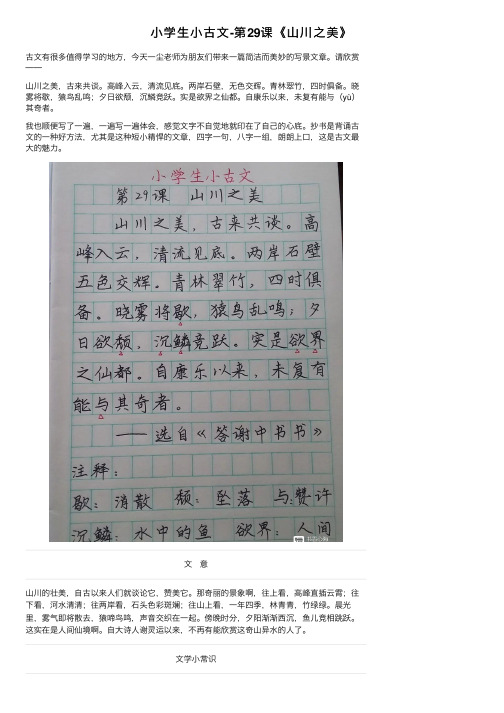 小学生小古文-第29课《山川之美》
古文有很多值得学习的地方，今天一尘老师为朋友们带来一篇简洁而美妙的写景文章。请欣赏
——
山川之美，古来共谈。高峰入云，清流见底。两岸石壁，无色交辉。青林翠竹，四时俱备。晓
雾将歇，猿鸟乱鸣；夕日欲颓，沉鳞竞跃。实是欲界之仙都。自康乐以来，未复有能与（yù）
其奇者。
我也顺便写了一遍，一遍写一遍体会，感觉文字不自觉地就印在了自己的心底。抄书是背诵古
文的一种好方法，尤其是这种短小精悍的文章，四字一句，八字一组，朗朗上口，这是古文最
大的魅力。
小学生小古文
第29课 山川之美
山川之美，古来共谈。高
峰入云，清流见底。两岸石壁
五色交辉。青林翠竹，四时俱
备。晓雾将歇，猿鸟乱鸣；夕
日欲颓，沉鳞竞跃。实是欲界
之仙都。自康乐以来，未复有
能与其奇者。
——选自《答谢中书书》
注释：
歇：消散 颓：坠落 与：赞许
沉鳞：水中的鱼 欲界：人间
文 意
山川的壮美，自古以来人们就谈论它，赞美它。那奇丽的景象啊，往上看，高峰直插云霄；往
下看，河水清清；往两岸看，石头色彩斑斓；往山上看，一年四季，林青青，竹绿绿。晨光
里，雾气即将散去，猿啼鸟鸣，声音交织在一起。傍晚时分，夕阳渐渐西沉，鱼儿竞相跳跃。
这实在是人间仙境啊。自大诗人谢灵运以来，不再有能欣赏这奇山异水的人了。
文学小常识